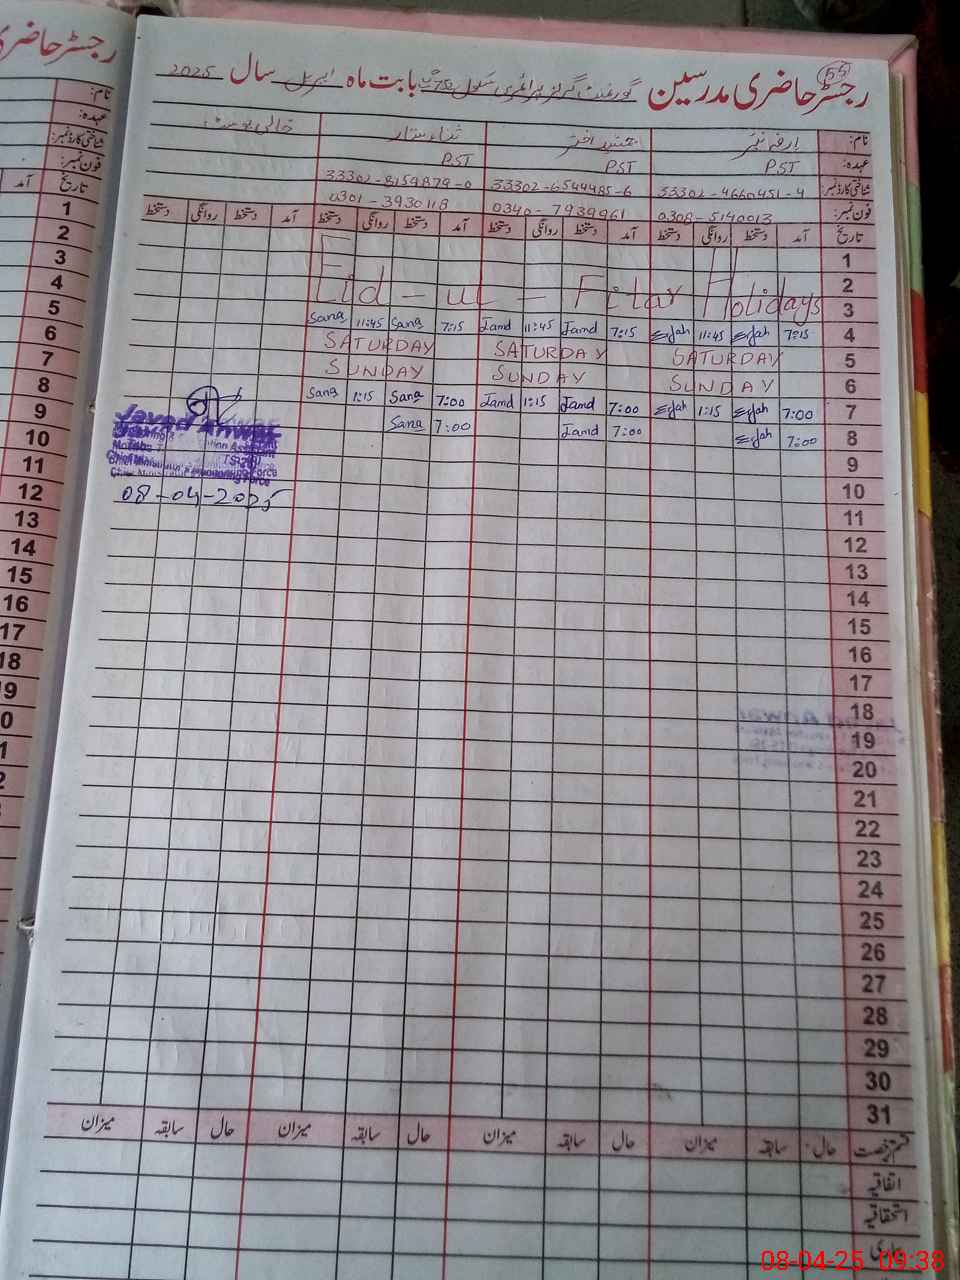 رجسٹر حاضری مدرسین گورنمنٹ گرلز پرائمری سکول بابت ماہ اپریل سال 2025
55
نام: جنس اختر ثناء ستار خالی پوسٹ
عہدہ: PST PST PST
شناختی کارڈ نمبر: 33302-4660451-4 33302-6544485-6 33302-8159879-0
فون نمبر: 0308-5140013 0340-7939961 0301-3930118
تاریخ آمد دستخط روانگی دستخط آمد دستخط روانگی دستخط آمد دستخط روانگی دستخط آمد دستخط روانگی دستخط
1
2
3 Eid-ul-Fitar Holidays
4 7:15 11:45 7:15 Jamd 11:45 Jamd 7:15 Sana 11:45 Sana
5 SATURDAY SATURDAY SATURDAY
6 SUNDAY SUNDAY SUNDAY
7 7:00 1:15 7:00 Jamd 1:15 Jamd 7:00 Sana 1:15 Sana
8 7:00 7:00 Jamd 7:00 Sana
Javed Anwar
08-04-2025
9
10
11
12
13
14
15
16
17
18
19
20
21
22
23
24
25
26
27
28
29
30
31
قسم رخصت حال سابقہ میزان حال سابقہ میزان حال سابقہ میزان حال سابقہ میزان
اتفاقیہ
استحقاقیہ
رجسٹر حاضری
نام:
عہدہ:
شناختی کارڈ نمبر:
فون نمبر:
تاریخ آمد
1
2
3
4
5
6
7
8
9
10
11
12
13
14
15
16
17
18
19
08-04-25 09:38